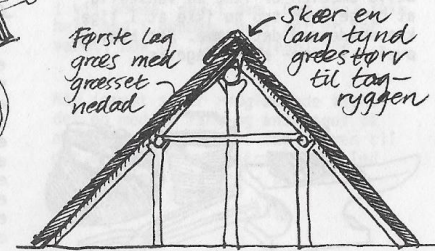 Første lag
græs med
græsset
nedad
Skær en
lang tynd
græstørv
til tag-
ryggen